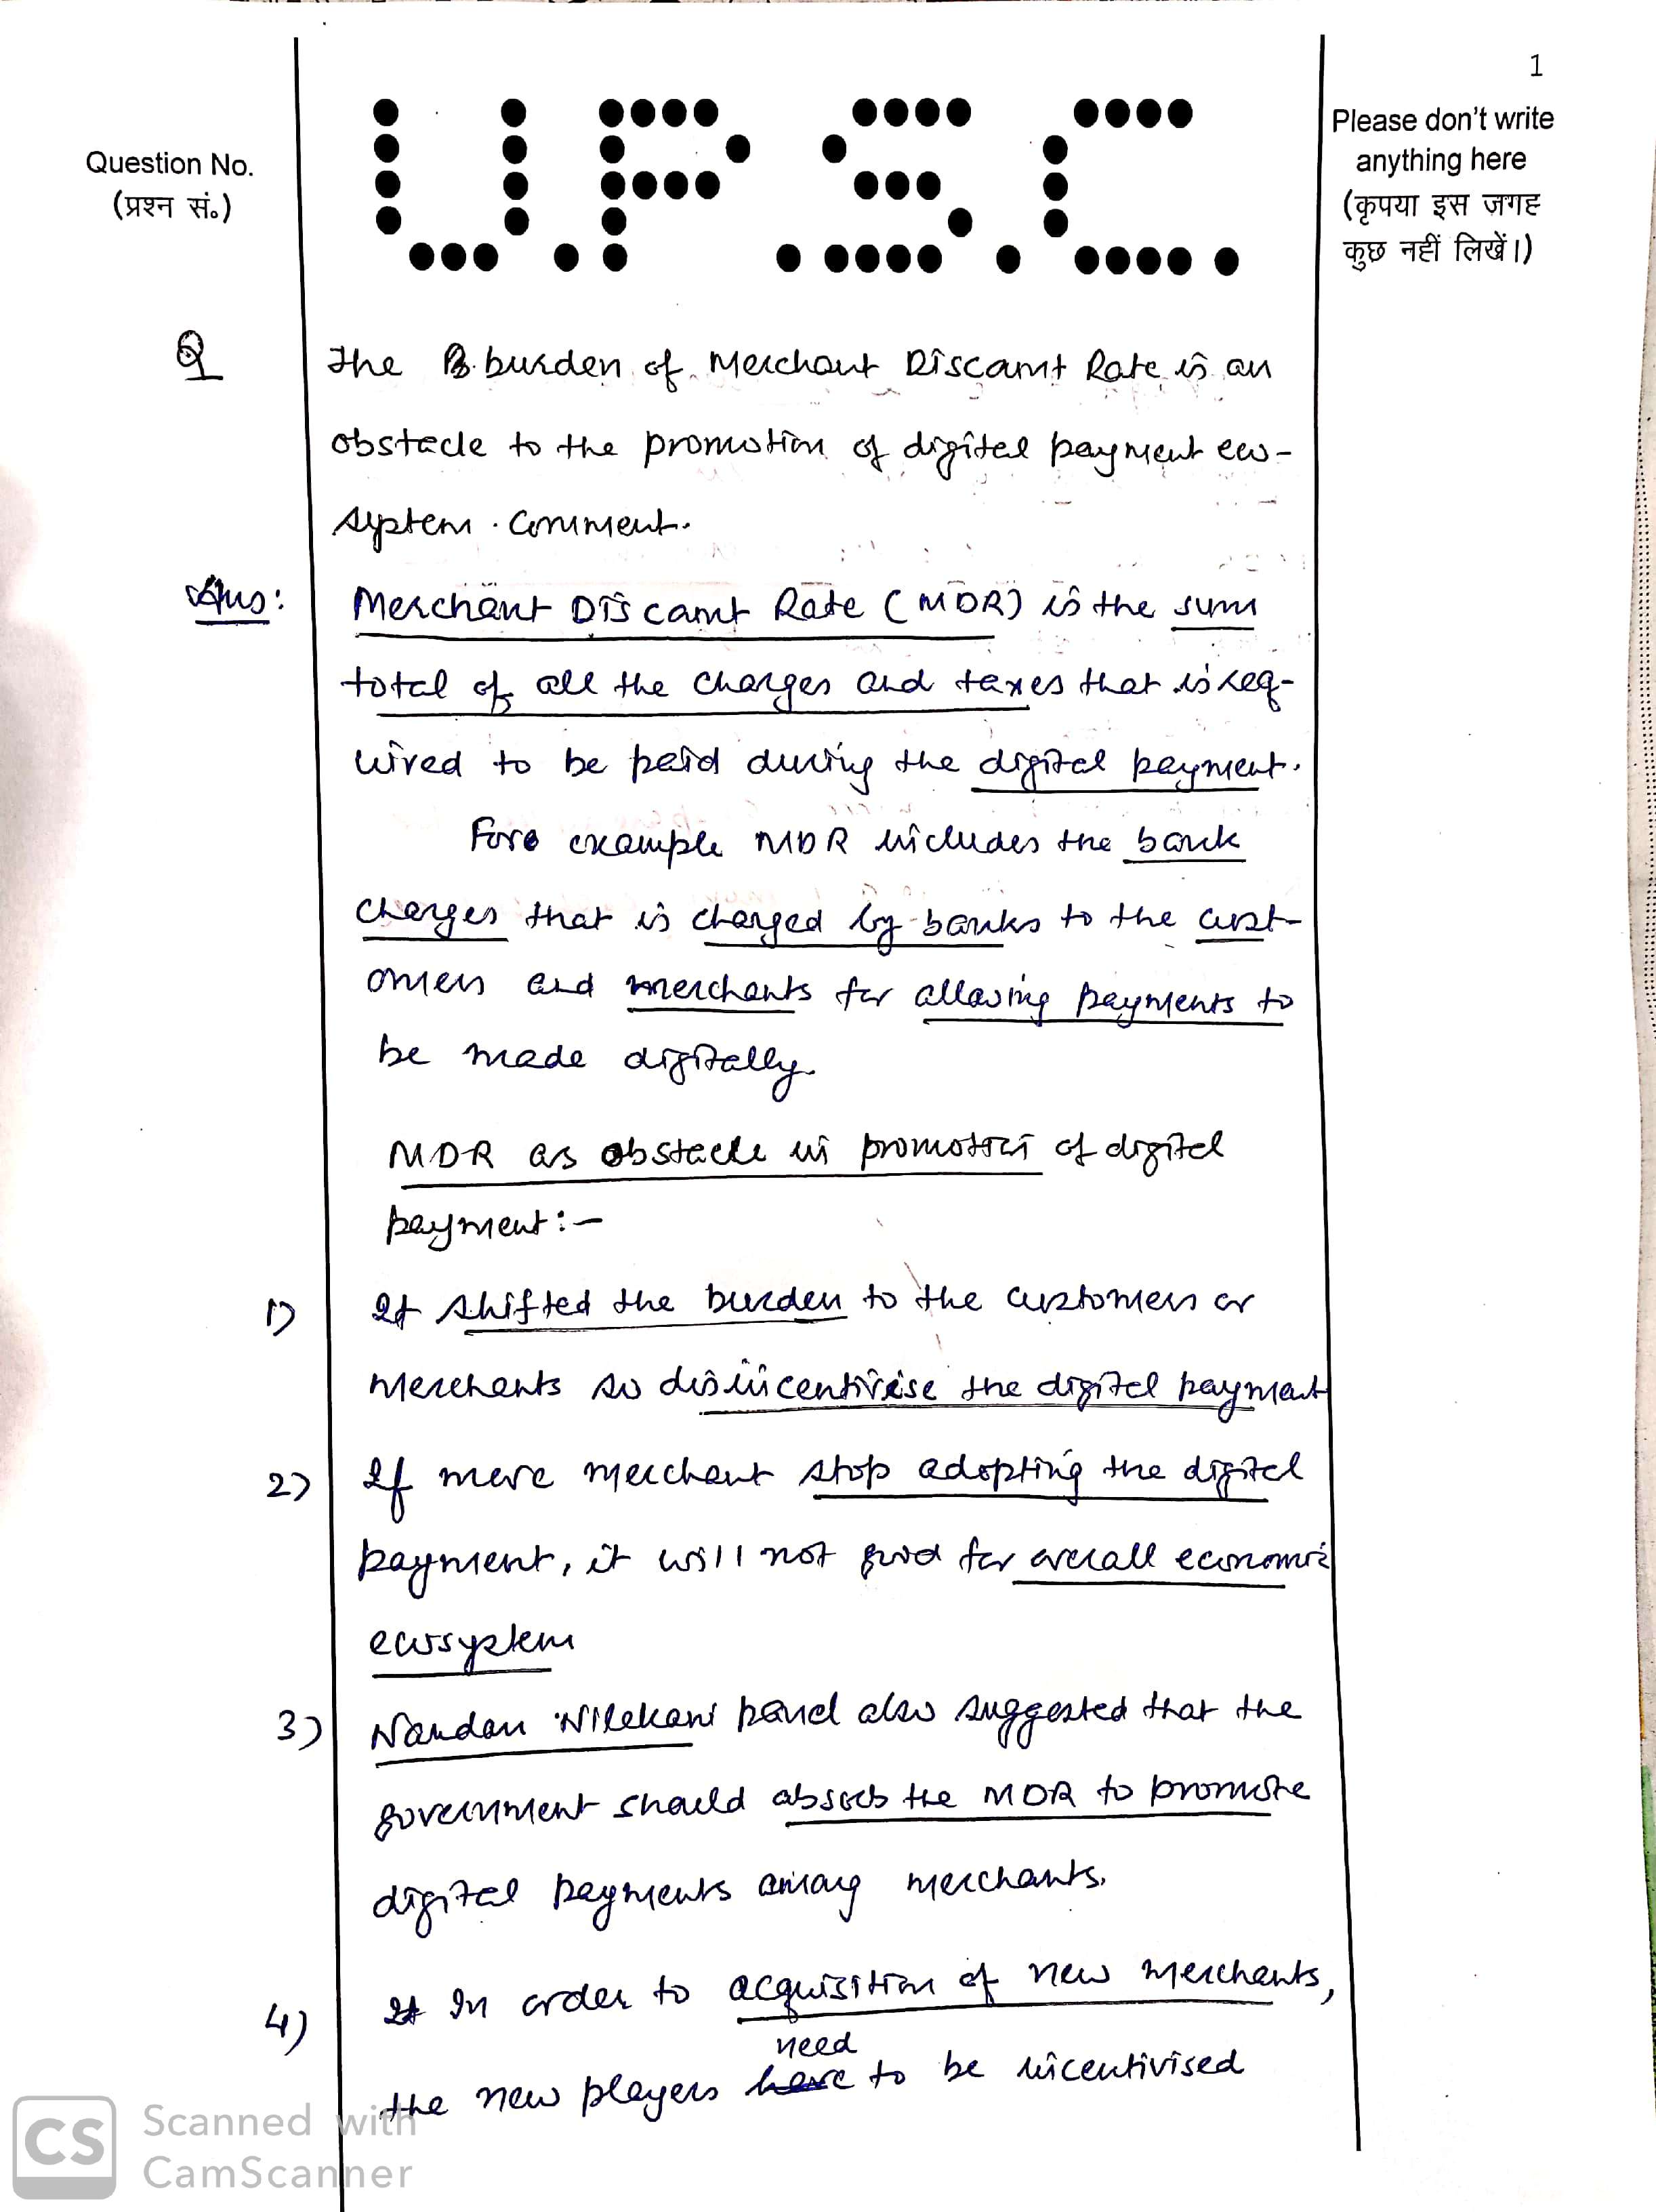 1
Please don't write
anything here
(कृपया इस जगह
कुछ नहीं लिखें।)
Question No.
(प्रश्न सं.)
U.P.S.C.
Q The burden of Merchant Discount Rate is an
obstacle to the promotion of digital payment eco-
system. Comment.
Ans: Merchant Discount Rate (MDR) is the sum
total of all the charges and taxes that is req-
uired to be paid during the digital payment.
For example MDR includes the bank
charges that is charged by banks to the cust-
omers and merchants for allowing payments to
be made digitally.
MDR as obstacle in promotion of digital
payment:-
1) It shifted the burden to the customers or
merchants so disincentivise the digital payment
2) If more merchant stop adopting the digital
payment, it will not good for overall economic
ecosystem
3) Nandan Nilekani panel also suggested that the
government should absorb the MDR to promote
digital payments among merchants.
4) In order to acquisition of new merchants,
the new players need to be incentivised
CS Scanned with
CamScanner